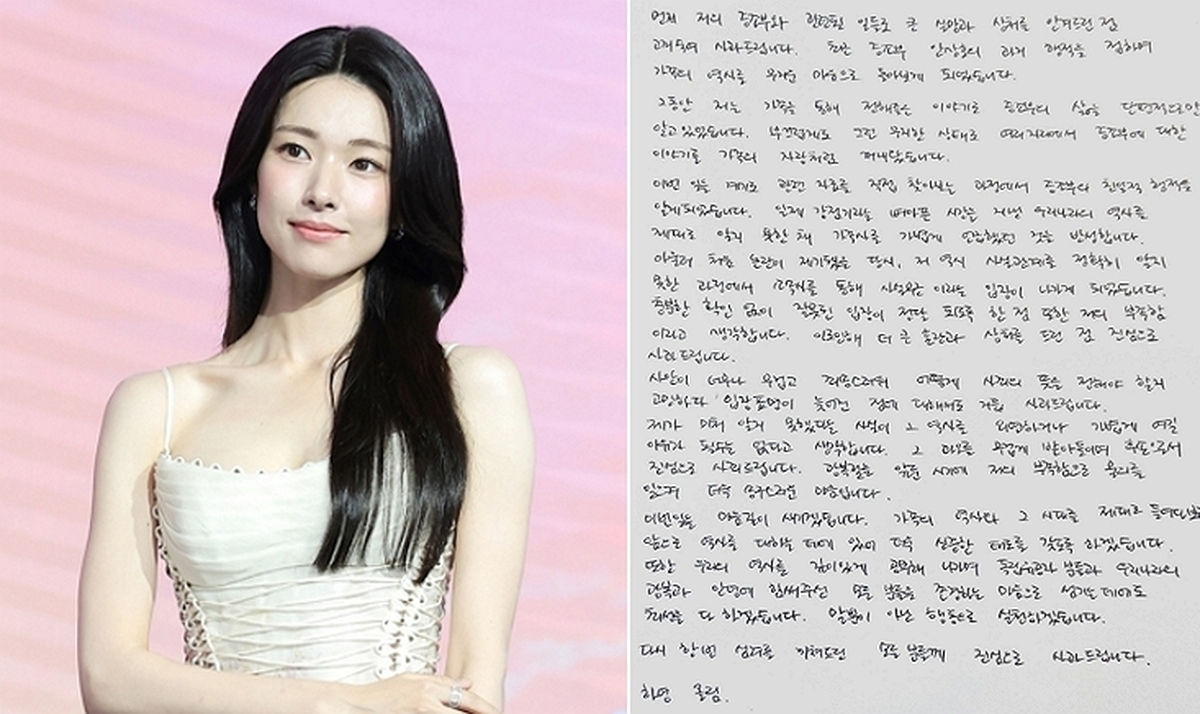 먼저 저의 증조부와 관련된 일들로 큰 실망과 상처를 안겨드린 점
고개숙여 사과드립니다. 최근 증조부 인상호의 과거 행적을 접하며
가족의 역사를 무거운 마음으로 돌아보게 되었습니다.
그동안 저는 가족을 통해 전해들은 이야기로 증조부의 삶을 단편적으로만
알고있었습니다. 부끄럽게도 그런 무지한 상태로 여러자리에서 증조부에 대한
이야기를 가족의 자랑처럼 꺼내왔습니다.
이번 일을 계기로 관련 자료를 직접 찾아보는 과정에서 증조부의 친일적 행적을
알게되었습니다. 일제 강점기라는 뼈아픈 시간을 지낸 우리나라의 역사를
제대로 알지 못한 채 가족사를 가볍게 언급했던 것을 반성합니다.
아울러 처음 논란이 제기됐을 당시, 저 역시 사실관계를 정확히 알지
못한 과정에서 소속사를 통해 사실무근 이라는 입장이 나가게 되었습니다.
충분한 확인 없이 잘못된 입장이 전달 되도록 한 점 또한 저의 부족함
이라고 생각합니다. 이로인해 더 큰 혼란과 상처를 드린 점 진심으로
사과드립니다.
사안이 너무나 무겁고 조심스러워 어떻게 사죄의 뜻을 전해야 할지
고민하다 입장표명이 늦어진 점에 대해서도 거듭 사과드립니다.
제가 미처 알지 못했다는 사실이 그 역사를 외면하거나 가볍게 여길
이유가 될수는 없다고 생각합니다. 그 과오를 무겁게 받아들이며 후손으로서
진심으로 사죄드립니다. 광복절을 앞둔 시기에 저의 부족함으로 물의를
일으켜 더욱 송구스러운 마음입니다.
이번일을 마음깊이 새기겠습니다. 가족의 역사와 그 시대를 제대로 들여다보고
앞으로 역사를 대하는 데에 있어 더욱 신중한 태도를 갖도록 하겠습니다.
또한 우리의 역사를 깊이있게 공부해 나가며 독립유공자 분들과 우리나라의
광복과 안녕에 힘써주신 모든 분들을 존경하는 마음으로 섬기는데에도
최선을 다 하겠습니다. 말뿐이 아닌 행동으로 실천하겠습니다.
다시 한번 심려를 끼쳐드린 모든 분들께 진심으로 사과드립니다.
하영 올림.